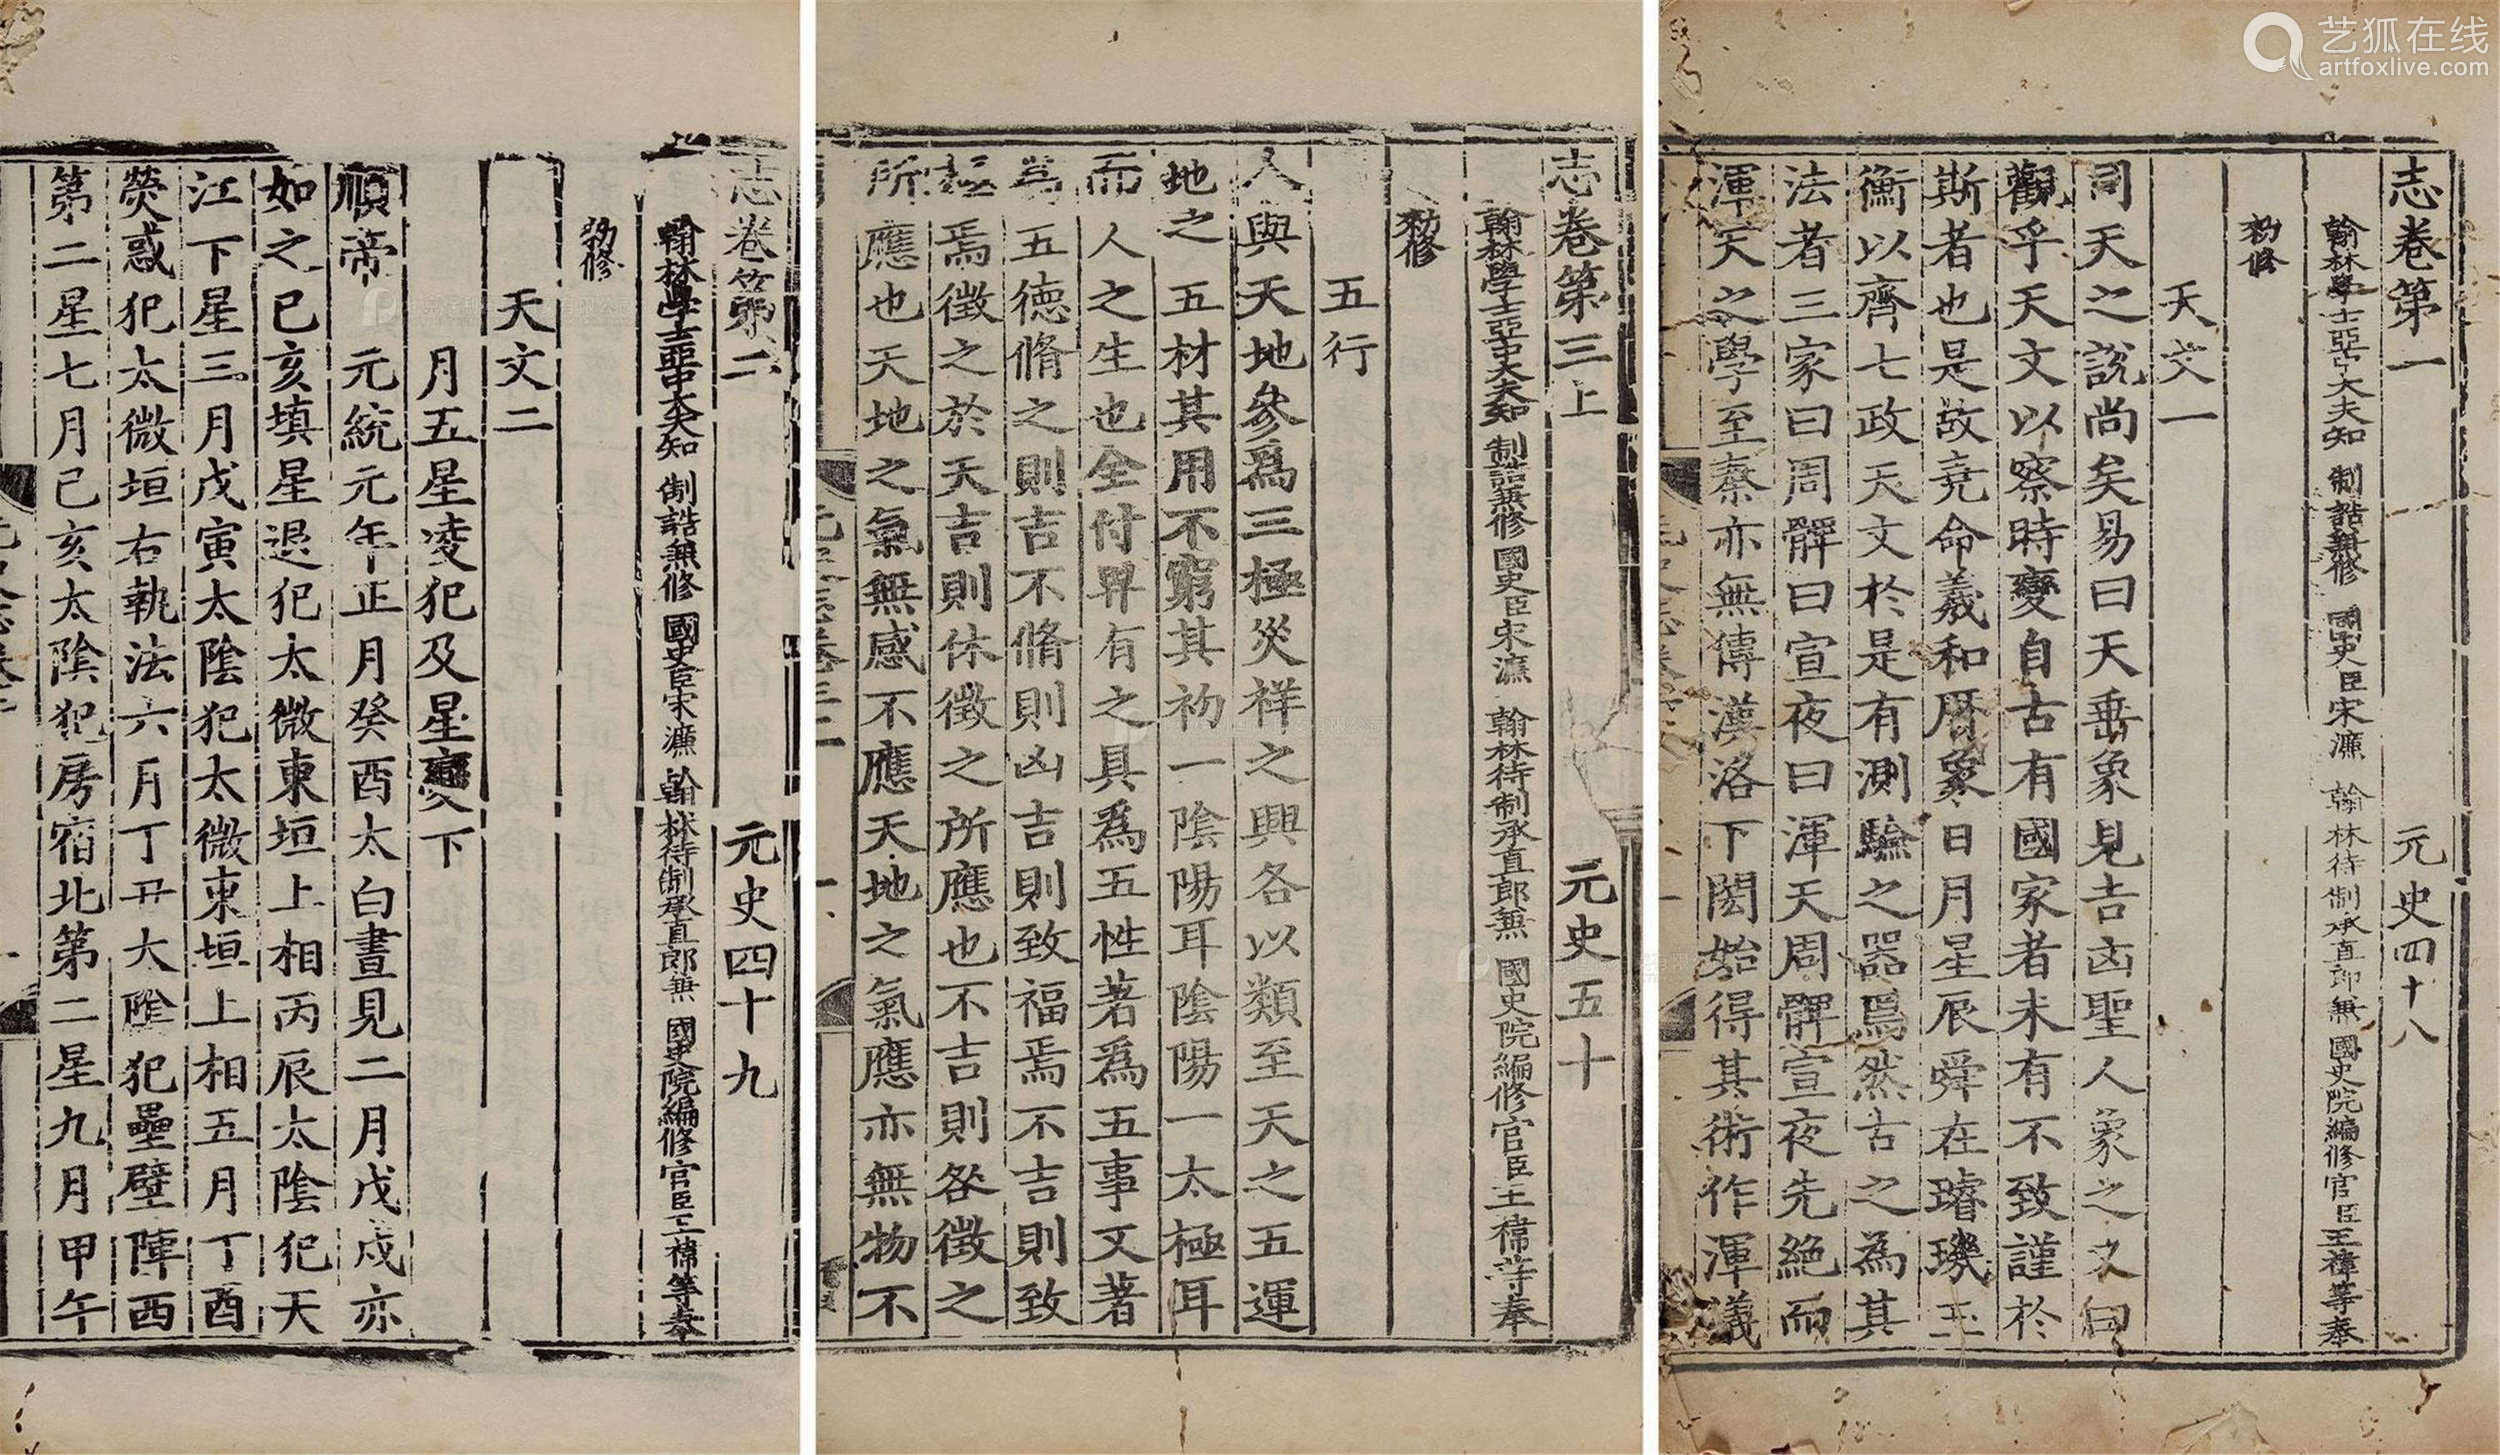 艺狐在线
artfoxlive.com
志卷第一 元史四十八
翰林學士亞中大夫知 制誥兼修 國史臣宋濂 翰林待制承直郎兼 國史院編修官臣王禕等奉
勑修
天文一
司天之說尚矣易曰天垂象見吉凶聖人象之又曰
觀乎天文以察時變自古有國家者未有不致謹於
斯者也是故堯命羲和曆象日月星辰舜在璿璣玉
衡以齊七政天文於是有測驗之器焉然古之為其
法者三家曰周髀曰宣夜曰渾天周髀宣夜先絶而
渾天之學至秦亦無傳漢洛下閎始得其術作渾儀
志卷第三上 元史五十
翰林學士亞中大夫知 制誥兼修 國史臣宋濂 翰林待制承直郎兼 國史院編修官臣王禕等奉
勑修
五行
人與天地參爲三極災祥之興各以類至天之五運
地之五材其用不窮其初一陰陽耳陰陽一太極耳
而人之生也全付畀有之具爲五性著爲五事又著
爲五德脩之則吉不脩則凶吉則致福焉不吉則致
極焉徵之於天吉則休徵之所應也不吉則咎徵之
所應也天地之氣無感不應天地之氣應亦無物不
志卷第二 元史四十九
翰林學士亞中大夫知 制誥兼修 國史臣宋濂 翰林待制承直郎兼 國史院編修官臣王禕等奉
勑修
天文二
月五星凌犯及星變下
順帝 元統元年正月癸酉太白晝見二月戊戌亦
如之己亥填星退犯太微東垣上相丙辰太陰犯天
江下星三月戊寅太陰犯太微東垣上相五月丁酉
熒惑犯太微垣右執法六月丁丑大陰犯壘壁陣西
第二星七月己亥太陰犯房宿北第二星九月甲午